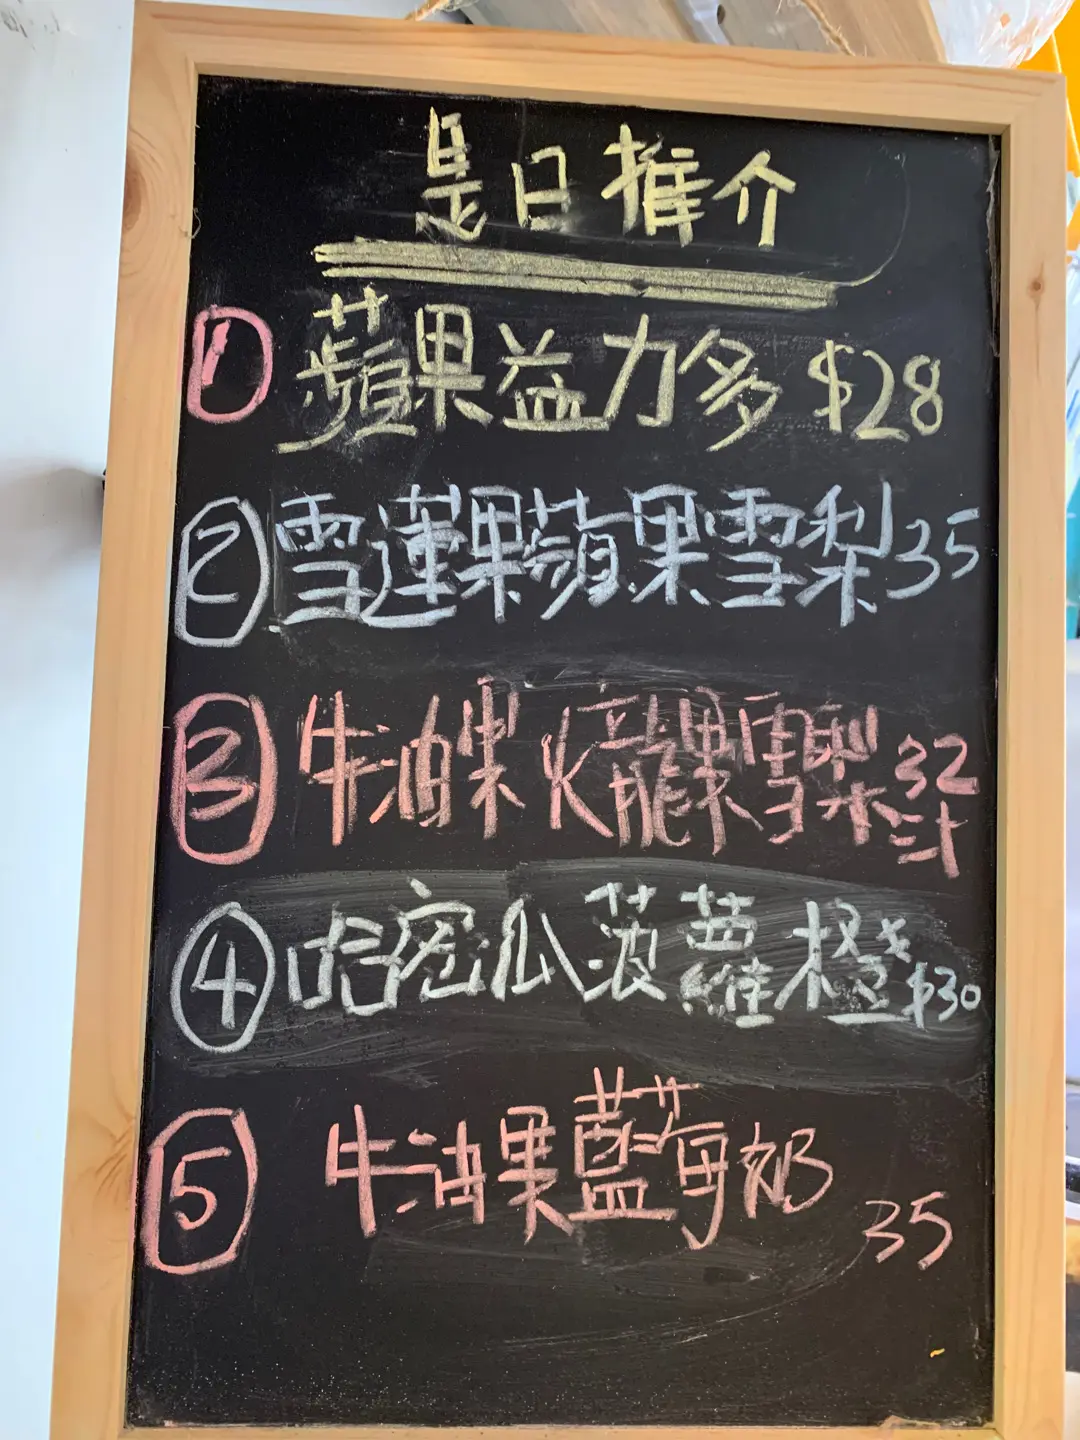 是日推介
① 蘋果益力多 $28
② 雪蓮果蘋果雪梨 35
③ 牛油果火龍果雪梨汁 32
④ 哈密瓜菠蘿橙 $30
⑤ 牛油果藍莓奶 35